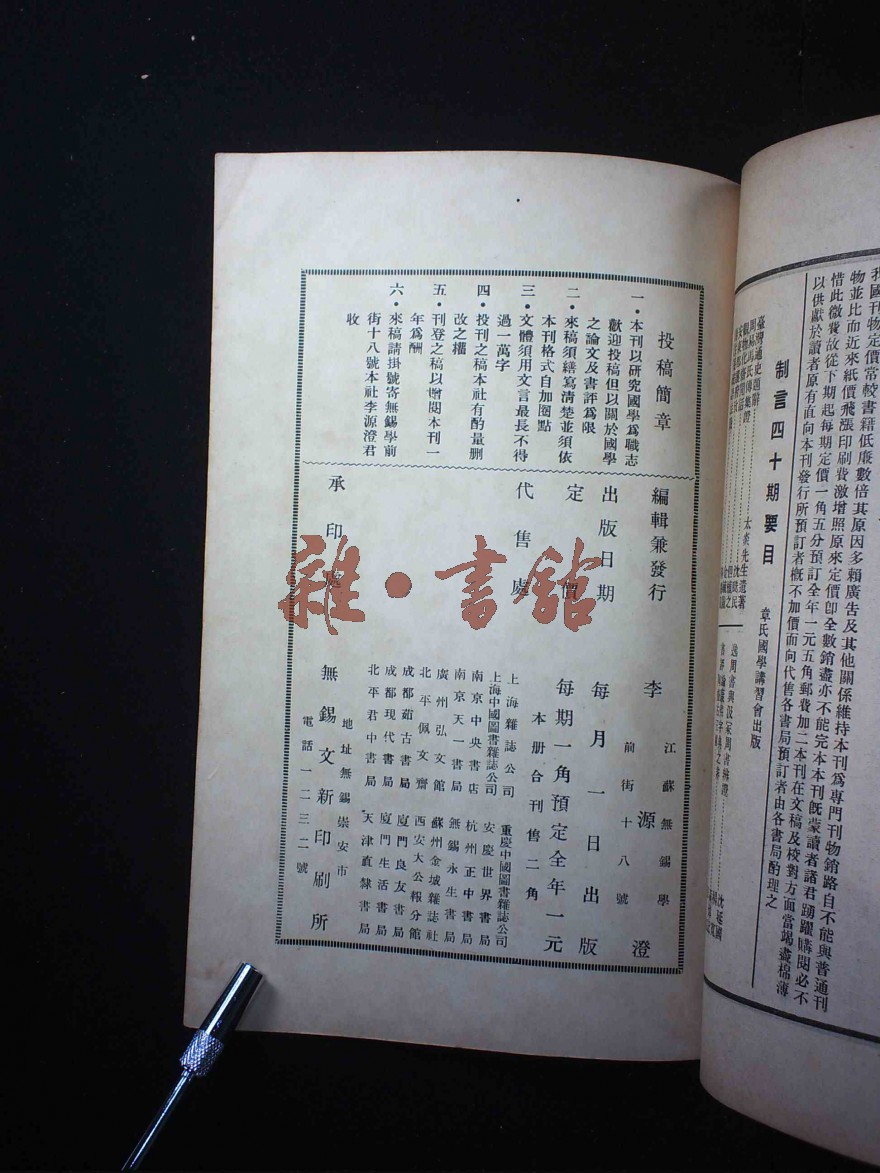 我國刊物定價常較書籍低廉數倍其原因多賴廣告及其他關係維持本刊爲專門刊物銷路自不能與普通刊
物並比而近來紙價飛漲印刷費激增照原來定價卽全數銷盡亦不能完本本刊旣蒙讀者諸君踴躍購閱必不
惜此微費故從下期起每期定價一角五分預訂全年一元五角郵費加二本刊在文稿及校對方面當竭盡棉薄
以供獻於讀者原有直向本刊發行所預訂者概不加價而向代售各書局預訂者由各書局酌理之
制言四十期要目
章氏國學講習會出版
臺灣通史題辭
太炎先生遺著
周易馬氏傳集證
沈瓞民
逸周書與汲冢周書辨證
沈延國
投稿簡章
一・本刊以研究國學爲職志
歡迎投稿但以關於國學
之論文及書評爲限
二・來稿須繕寫清楚並須依
本刊格式自加圈點
三・文體須用文言最長不得
過一萬字
四・投刊之稿本社有酌量刪
改之權
五・刊登之稿以增閱本刊一
年爲酬
六・來稿請掛號寄無錫學前
街十八號本社李源澄君
收
編輯兼發行
江蘇無錫學
李源澄
前街十八號
出版日期
每月一日出版
定價
每期一角預定全年一元
本册合刊售二角
代售處
上海雜誌公司
重慶中國圖書雜誌公司
上海中國圖書雜誌公司
安慶世界書局
南京中央書店
杭州正中書局
南京天一書局
無錫永生書局
廣州弘文館
蘇州金城雜誌社
北平佩文齋
西安大公報分館
成都茹古書局
廈門良友書局
成都現代書局
廈門生活書局
北平君中書局
天津直隸書局
承印處
地址無錫崇安市
無錫文新印刷所
電話一二三二號
雜・書館